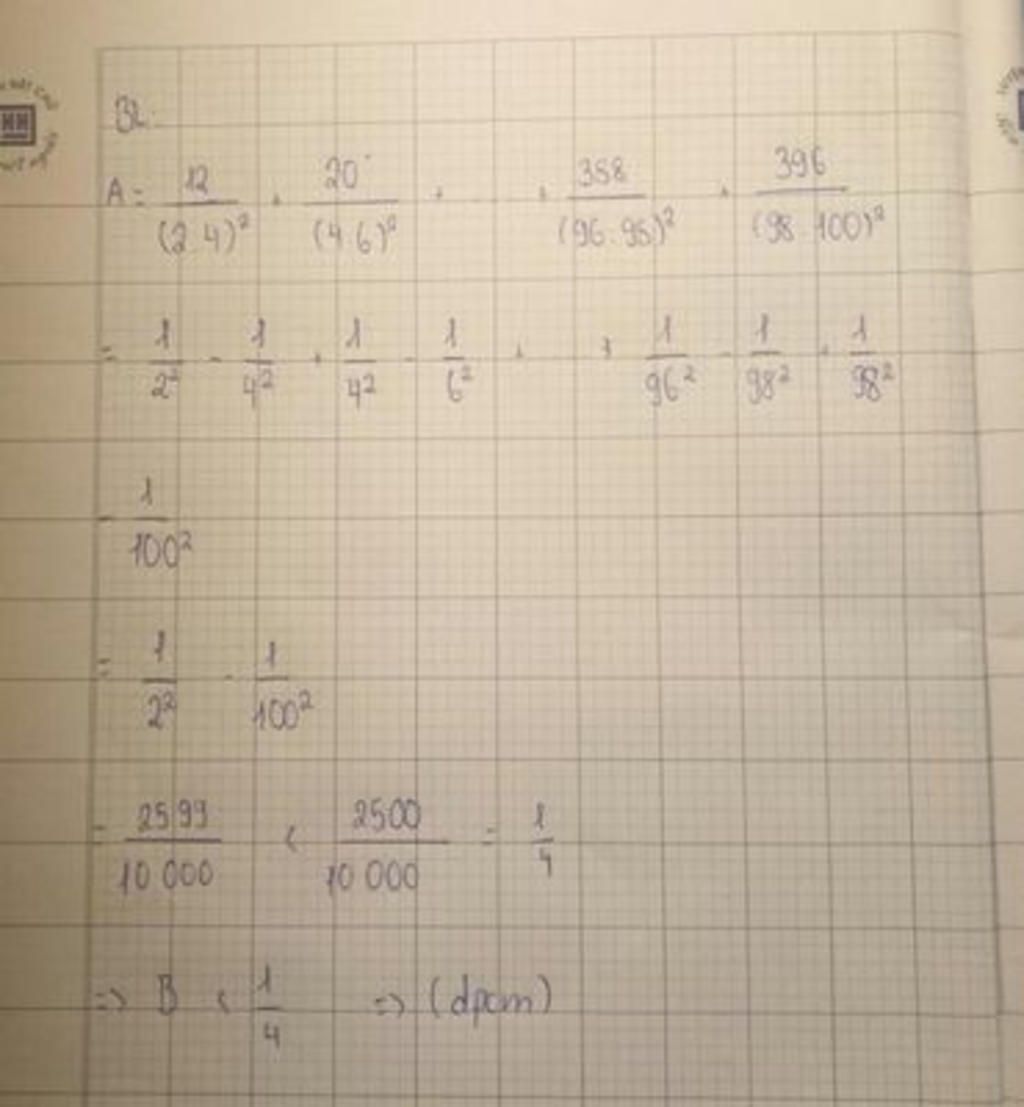 B2:
A = 12/(2.4)² + 20/(4.6)² + + 358/(96.98)² + 396/(98.100)²
= 1/2² - 1/4² + 1/4² - 1/6² + + 1/96² - 1/98² + 1/98²
- 1/100²
= 1/2² - 1/100²
= 2599/10 000 < 2500/10 000 = 1/4
=> B < 1/4 => (dpcm)